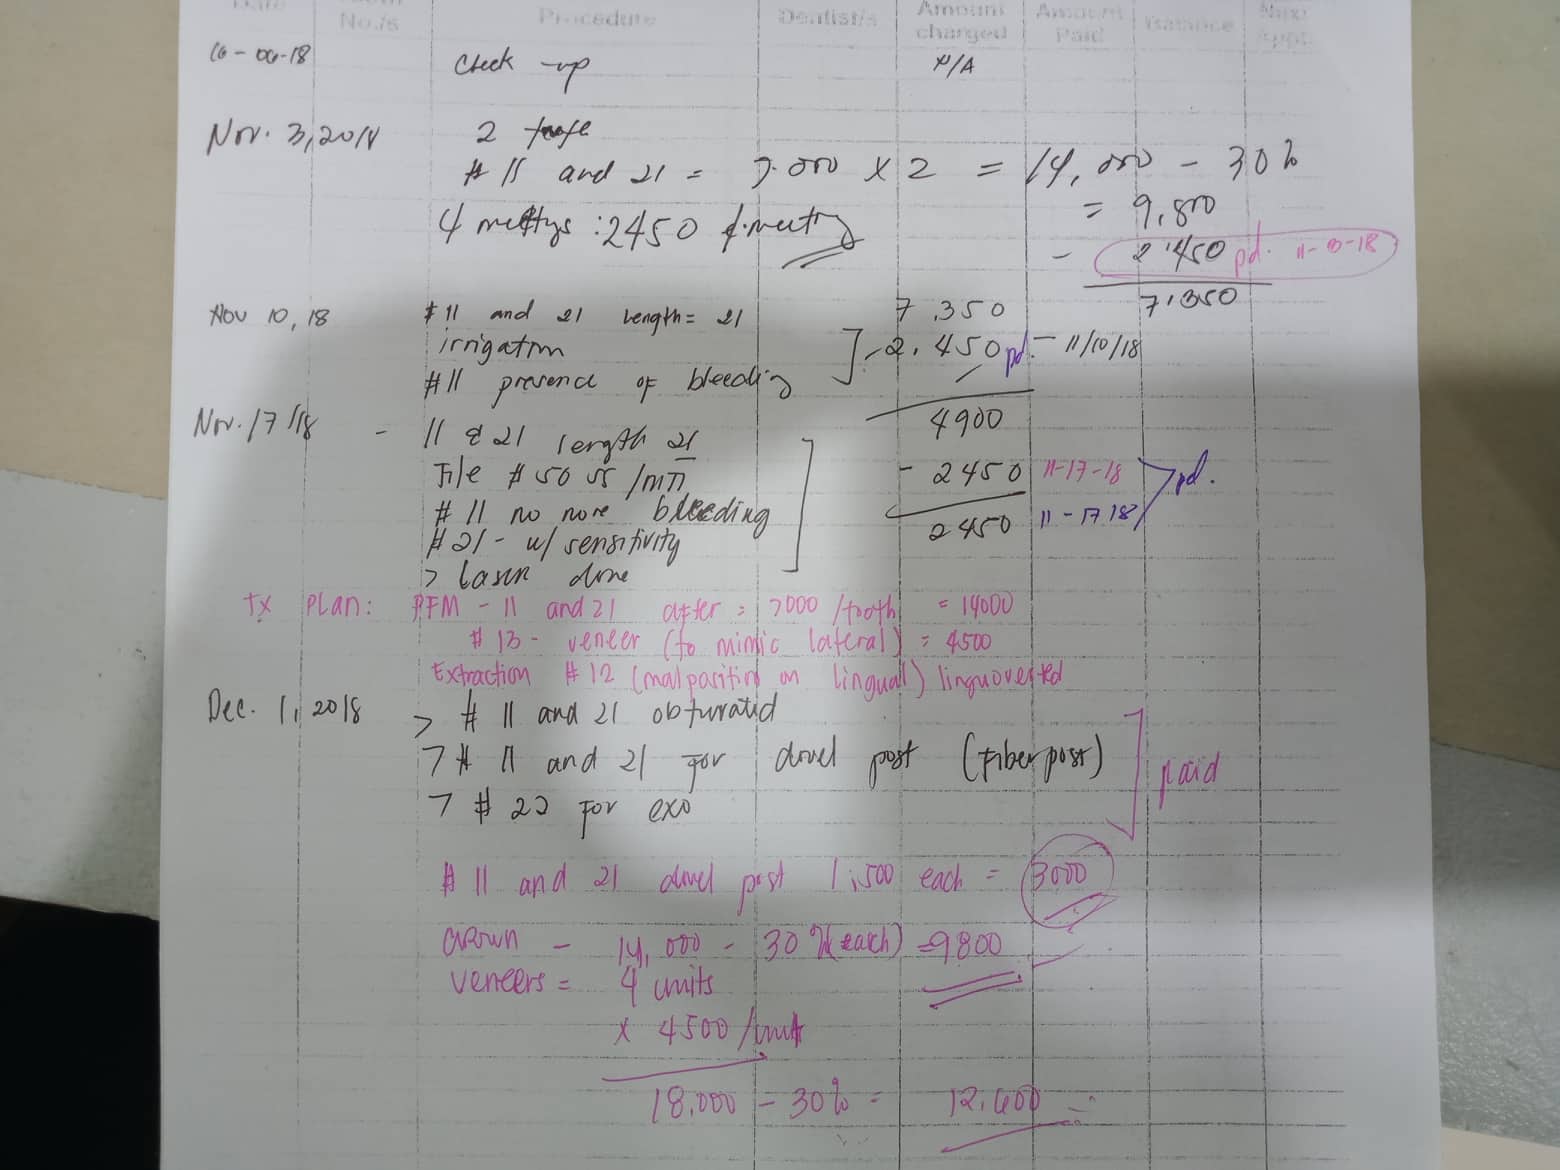 Date No./s Procedure Dentist/s Amount charged Amount Paid Balance Next Appt.
10-06-18 Check-up N/A
Nov. 3, 2018 2
# 11 and 21 = 7.000 x 2 = 14,000 - 30%
= 9,800
4 : 2450
- 2,450 pd. 11-3-18
7,350
Nov 10, 18 # 11 and 21 length = 21 7,350
irrigation - 2,450 pd - 11/10/18
# 11 presence of bleeding
4900
Nov. 17/18 - 11 & 21 length 21
File # 50 55 /mm - 2450 11-17-18 > pd.
# 11 no more bleeding 2450 11-17 18
# 21 - w/ sensitivity
> laser done
Tx Plan: PFM - 11 and 21 after = 7000 /tooth = 14000
# 13 - veneer (to mimic lateral) = 4500
Extraction # 12 (malposition on lingual) linguoverted
Dec. 1, 2018 > # 11 and 21 obturated
> # 11 and 21 for dowel post (Fiber post) paid
> # 22 for exo
# 11 and 21 dowel post 1,500 each = 3000
crown - 14,000 - 30% (each) = 9800
veneers = 4 units
x 4500 /unit
18,000 - 30% = 12,600